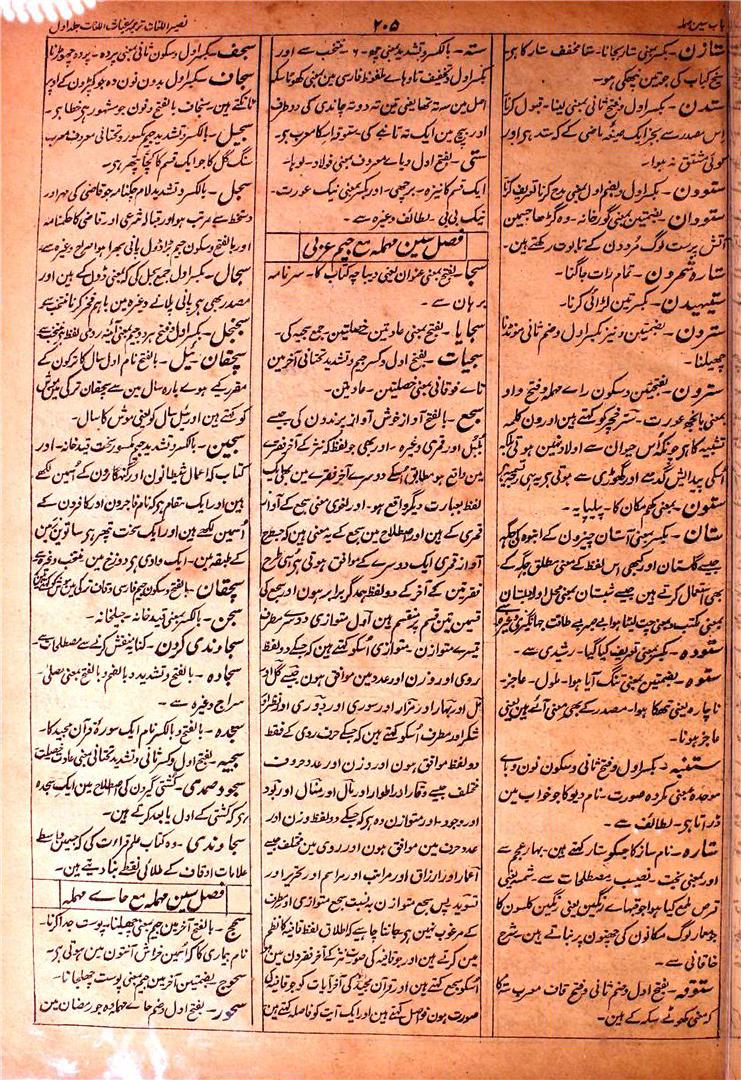 باب سین مہملہ
۲۰۵
نصیر اللغات ترجمہ غیاث اللغات جلد اول
ستازن - بکسر بمعنی ستار بجانا - ستا مخفف ستار کا ہے
سیخ کباب کی جو تین پہیکی ہو -
ستدن - بکسر اول وفتح ثانی بمعنی لینا - قبول کرنا
اس مصدر سے بجز ایک صیغہ ماضی کے کہ ستد ہے اور
کوئی مشتق نہ ہوا -
ستودن - بکسر اول وبضم اول بمعنی مدح کرنا تعریف کرنا
ستودان - بضمتین بمعنی گورخانہ - وہ گڑھا جسمین
آتش پرست لوگ مردون کے تابوت رکھتے ہین -
ستارہ شمردن - تمام رات جاگنا -
ستیہیدن - بکسرتین لڑائی کرنا -
سترون - بضمتین ونیز بکسر اول وضم ثانی مونڈنا
چھیلنا -
سترون - بفتحتین وسکون راے مہملہ وفتح واو
بمعنی بانجھ عورت - ستر خچر کو کہتے ہین اور ون کلمہ
تشبیہ کا ہے چونکہ اس حیوان سے اولاد نہین ہوتی بلکہ
اسکی پیدایش گدھے اور گھوڑی سے ہوتی ہے
ستون - بمعنی کھم مکان کا - پیلپایہ -
ستان - بکسر بمعنی آستان چیزون کے انبوہ کی جگہ
جیسے گلستان اور کبھی اس لفظ کے معنی مطلق جگہ کے
بھی استعمال کرتے ہین جیسے شبستان بمعنی محل اور دبستان
بمعنی مکتب وبمعنی چت لیٹا ہوا
ستودہ - بکسر بمعنی تعریف کیا گیا - رشیدی سے -
ستوہ - بضمتین بمعنی تنگ آیا ہوا - ملول - عاجز -
ناچار بمعنی تھکا ہوا - مصدر کے بھی معنی آتے ہین یعنی
عاجز ہونا -
ستنبہ - بکسر اول وفتح ثانی وسکون نون وباے
موحدہ بمعنی مکروہ صورت - نام دیو کا جو خواب مین
ڈراتا ہے - لطائف سے -
ستارہ - نام ساز کا جسکو ستار کہتے ہین - بہار عجم سے
اور بمعنی بخت - نصیب مصطلحات سے -
قرص طمع کیا ہوا جو قبہاے رنگین یعنی رنگین کلسون کا
خاقانی سے -
ستوقہ - بفتح اول وضم ثانی وفتح قاف معرب ستہ کا
کہ معنی کھوٹے سکہ کے ہین -
ستہ - بالکسر وتشدید بمعنی چھ - ۶ - منتخب سے اور
بکسر اول وتخفیف تا وہاے ملفوظ فارسی مین بمعنی کھوٹا سکہ
اصل مین سہ تہ تھا یعنی تین تہ دو تہ چاندی کی دو طرف
اور بیچ مین ایک تہ تانبے کی ستوقہ اسکا معرب ہے -
ستی - بفتح اول ویاے معروف بمعنی فولاد - لوہا -
ایک قسم کا نیزہ - برچھی - اور بکسر بمعنی نیک عورت -
نیک بی بی - لطائف وغیرہ سے -
فصل سین مہملہ مع جیم عربی
سجا - بفتح بمعنی عنوان یعنی دیباچہ کتاب کا - سرنامہ
برہان سے -
سجایا - بفتح بمعنی عادتین خصلتین - جمع سجیہ کی -
سجیات - بفتح اول وکسر جیم وتشدید تحتانی آخر مین
تاے فوقانی بمعنی خصلتین - عادتین -
سجع - بالفتح آواز خوش آواز پرندون کی جیسے
بلبل اور قمری وغیرہ - اور بھی جو لفظ کہ نثر کے آخر فقرے
مین واقع ہو مطابق اسکے دوسرے آخر فقرے مین بھی ایک
لفظ بعبارت دیگر واقع ہو - اور لغوی معنی سجع کے آواز
قمری کے ہین اور اصطلاح مین سجع کے یہ معنی ہین کہ جسطرح
آواز قمری ایک دوسرے کے موافق ہوتی ہے اسی طرح
فقرتین کے آخر کے دو لفظ ہمدگر برابر ہون اور سجع کی
قسمین تین قسم پر منقسم ہین اول متوازی دوسرے مطرف
تیسرے متوازن - متوازی اسکو کہتے ہین کہ جسکے دو لفظ
روی اور وزن اور عدد مین موافق ہون جیسے گل اور
شکر اور مطرف اسکو کہتے ہین کہ جسکے حرف روی کے فقط
دو لفظ موافق ہون اور وزن اور عدد حروف
مختلف جیسے وقار اور اطوار اور مال اور منال اور بود
اور وجود - اور متوازن وہ ہے کہ جسکے دو لفظ وزن اور
عدد حرف مین موافق ہون اور روی مین مختلف جیسے
اعمار اور ارزاق اور مراتب اور مراسم اور تحریر اور
تسوید پس سجع متوازن بہ نسبت سجع متوازی اور مطرف
کے مرغوب نہین ہے جاننا چاہیے کہ اطلاق لفظ قافیہ کا نظم
مین کرتے ہین اور جو قافیہ کی صورت نثر کے آخر فقرون مین ہو
اسکو سجع کہتے ہین اور قرآن مجید کی آخر آیات کو جو قافیہ کی
صورت ہون فواصل کہتے ہین اور ایک آیت کو فاصلہ کہتے ہین
سجف - بکسر اول وسکون ثانی بمعنی پردہ - پردہ چھوڑنا
سجاف - بکسر اول بدون نون وہ جو کپڑون کے اوپر
ٹانکتے ہین - سنجاف بالفتح ونون جو مشہور ہے خطا ہے -
سجیل - بالکسر وتشدید جیم مکسور وتحتانی معروف معرب
سنگ گل کا جو ایک قسم کا کچا پتھر ہے -
سجل - بالکسر وتشدید لام چکنامہ جو قاضی کی مہر اور
دستخط سے مرتب ہو اور قبالہ شرعی اور قاضی کا حکمنامہ
اور بالفتح وسکون جیم بڑا ڈول پانی بھرا ہوا سراج وغیرہ سے
سجال - بکسر اول جمع سجل کی کہ بمعنی ڈول کے ہین اور
مصدر بھی ہے پانی پلانے وغیرہ مین باہم فخر کرنا منتخب سے
سجنجل - بکسر اول وفتح ہر دو جیم بمعنی آئینہ رومی لفظ ہے
سچقان ئیل - بالفتح نام اول سال کا ترکون کے
مقرر کیے ہوے بارہ سال مین سے سچقان ترکی مین موش
کو کہتے ہین اور ئیل سال کو یعنی موش کا سال -
سجین - بالکسر وتشدید جیم مکسور سخت قید خانہ - اور
کتاب کہ اعمال شیطانون اور گنہگارون کے اسمین لکھے
ہین اور ایک مقام ہے کہ نام فاجرون اور کافرون کے
اسمین لکھے ہین اور ایک سخت پتھر ہے ساتوین زمین
کے طبقہ مین - ایک وادی ہے دوزخ مین منتخب وغیرہ سے
سچقان - بالفتح وسکون جیم فارسی وقاف ترکی مین موش کو کہتے ہین
سجن - بالکسر بمعنی قید خانہ - جیلخانہ -
سجاوندی کردن - کنایہ نقش کرنے سے مصطلحات سے
سجادہ - بالفتح وتشدید دبالضم وبالفتح بمعنی مصلی -
سراج وغیرہ سے -
سجدہ - بالفتح وبالکسر نام ایک سورۂ قرآن مجید کا -
سجیہ - بفتح اول وکسر ثانی وتشدید تحتانی بمعنی عادت خصلت
سجود صمدی - کشتی گیرون کی اصطلاح مین ایک سجدہ
ہے کہ کشتی کے اول یا بعد کرتے ہین -
سجاوندی - وہ کتاب علم قراءت کی کہ جسمین واسطے
علامات اوقاف کے طلائی نقطے بنا دیتے ہین -
فصل سین مہملہ مع حاے مہملہ
سحج - بالفتح آخر مین جیم بمعنی چھیلنا پوست جدا کرنا -
نام بیماری کا کہ اسمین خراش آنتون مین ہوتی ہے -
سحوج - بضمتین آخر مین جیم بمعنی پوست چھلجانا -
سحور - بفتح اول وضم حاے مہملہ وہ جو رمضان مین